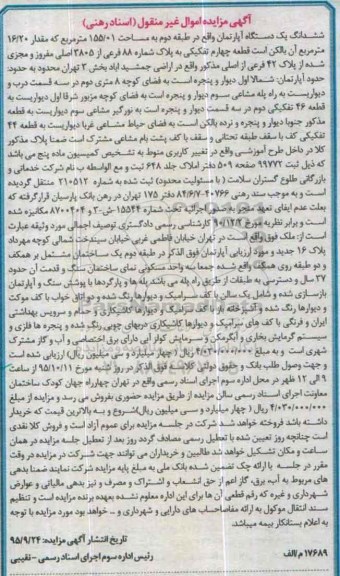 آگهی مزایده اموال غیر منقول (اسناد رهنی)
ششدانگ یک دستگاه آپارتمان واقع در طبقه دوم به مساحت ۱۵۵/۰۱ مترمربع که مقدار ۱۶/۲۰
مترمربع آن بالکن است قطعه چهارم تفکیکی به پلاک شماره ۸۸ فرعی از ۳۸۰۵ اصلی مفروز و مجزی
شده از پلاک ۴۲ فرعی از اصلی مذکور واقع در اراضی جمشید اباد بخش ۳ تهران محدود به حدود:
حدود آپارتمان: شمالا اول دیوار و پنجره است به فضای کوچه ۸ متری دوم در سه قسمت درب و
دیواریست به راه پله مشاعی سوم دیوار و پنجره است به فضای کوچه مزبور شرقا اول دیواریست به
قطعه ۴۶ تفکیکی دوم در سه قسمت دیوار و پنجره است به نورگیر مشاعی سوم دیواریست به قطعه
مذکور جنوبا دیوار و پنجره و نرده بالکن است به فضای حیاط مشاعی غربا دیواریست به قطعه ۴۴
تفکیکی کف با سقف طبقه تحتانی و سقف با کف پشت بام مشاعی مشترک است ضمنا پلاک مذکور
کلا در داخل طرح آموزشی واقع در تغییر کاربری منوط به تشخیص کمیسیون ماده پنج می باشد
که ذیل ثبت ۹۹۷۷۲ صفحه ۵۰۹ دفتر املاک جلد ۶۴۸ ثبت و مع الواسطه به نام شرکت خدماتی و
بازرگانی طلوع گستران سلامت ( با مسئولیت محدود) ثبت شده به شماره ۲۱۰۵۱۲ منتقل گردیده
است و به موجب سند رهنی ۴۰۷۶۶-۸۴/۶/۷ دفتر ۱۷۵ تهران در رهن بانک پارسیان قرارگرفته که
بعلت عدم ایفای تعهد منجر به صدور اجرائیه تحت شماره ۱۵۵۴۴-ش-۳ و ۸۷۰۰۴۰۴ مکانیزه شده
است و برابر نظریه مورخ ۹۰/۱۲/۴ کارشناسی رسمی دادگستری توصیف اجمالی مورد وثیقه عبارت
است از: ملک فوق واقع است در تهران خیابان فاطمی غربی خیابان سیندخت شمالی کوچه مهرداد
پلاک ۱۶ جدید و مورد ارزیابی آپارتمان فوق الذکر در طبقه دوم یک ساختمان مشتمل بر همکف
و دو طبقه روی همکف واقع شده جمعا سه واحد مسکونی نمای ساختمان سنگ و قدمت آن حدود
۳۷ سال و دسترسی به طبقات از طریق راه پله می باشد پله ها و پاگردها با پوشش سنگ و آپارتمان
بازسازی شده و شامل یک سالن با کف سرامیک و دیوارها رنگ شده و دو اتاق خواب با کف موکت
و دیوارها رنگ شده و آشپزخانه باز با کف سرامیک و دیوارها کاشیکاری و حمام و سرویس بهداشتی
ایران و فرنگی با کف های سرامیک و دیوارها کاشیکاری دربهای چوبی رنگ شده و پنجره ها فلزی و
سیستم گرمایش بخاری و آبگرمکن و سرمایش کولر آبی دارای برق اختصاصی و آب و گاز مشترک
شهری است و به مبلغ ۴/۰۳۰/۰۰۰/۰۰۰ ریال ( چهار میلیارد و سی میلیون ریال) ارزیابی شده است
و جهت وصول طلب بانک و حقوق دولتی کلاسه فوق الذکر در روز شنبه مورخ ۹۵/۱۰/۱۱ از ساعت
۹ الی ۱۲ ظهر در محل اداره سوم اجرای اسناد رسمی واقع در تهران چهارراه جهان کودک ساختمان
معاونت اجرای اسناد رسمی سالن مزایده از طریق مزایده حضوری بفروش می رسد و مزایده از مبلغ
۴/۰۳۰/۰۰۰/۰۰۰ ریال ( چهار میلیارد و سی میلیون ریال)شروع و به بالاترین قیمت که خریدار
داشته باشد فروخته خواهد شد شرکت در جلسه مزایده برای عموم آزاد است و فروش کلا نقدی
است چنانچه روز تعیین شده با تعطیل رسمی مصادف گردد روز بعد از تعطیل جلسه مزایده در همان
ساعت و مکان تشکیل خواهد شد طالبین و خریداران می توانند جهت شرکت در مزایده در وقت
مقرر در جلسه با ارائه چک تضمین شده بانک ملی به مبلغ پایه مزایده شرکت نمایند ضمنا بدهی
های مربوط به آب، برق، گاز اعم از حق انشعاب و اشتراک و مصرف و نیز بدهی مالیاتی و عوارض
شهرداری و غیره که رقم قطعی آن ها برای این اداره معلوم نشده بعهده برنده مزایده است و تنظیم
سند انتقال موکول به ارائه مفاصاحساب های دارایی و شهرداری و .. خواهد بود مورد مزایده با توجه
به اعلام بستانکار بیمه میباشد.
تاریخ انتشار آگهی مزایده: ۹۵/۹/۲۴
۱۷۶۸۹ م الف
رئیس اداره سوم اجرای اسناد رسمی - نقیبی